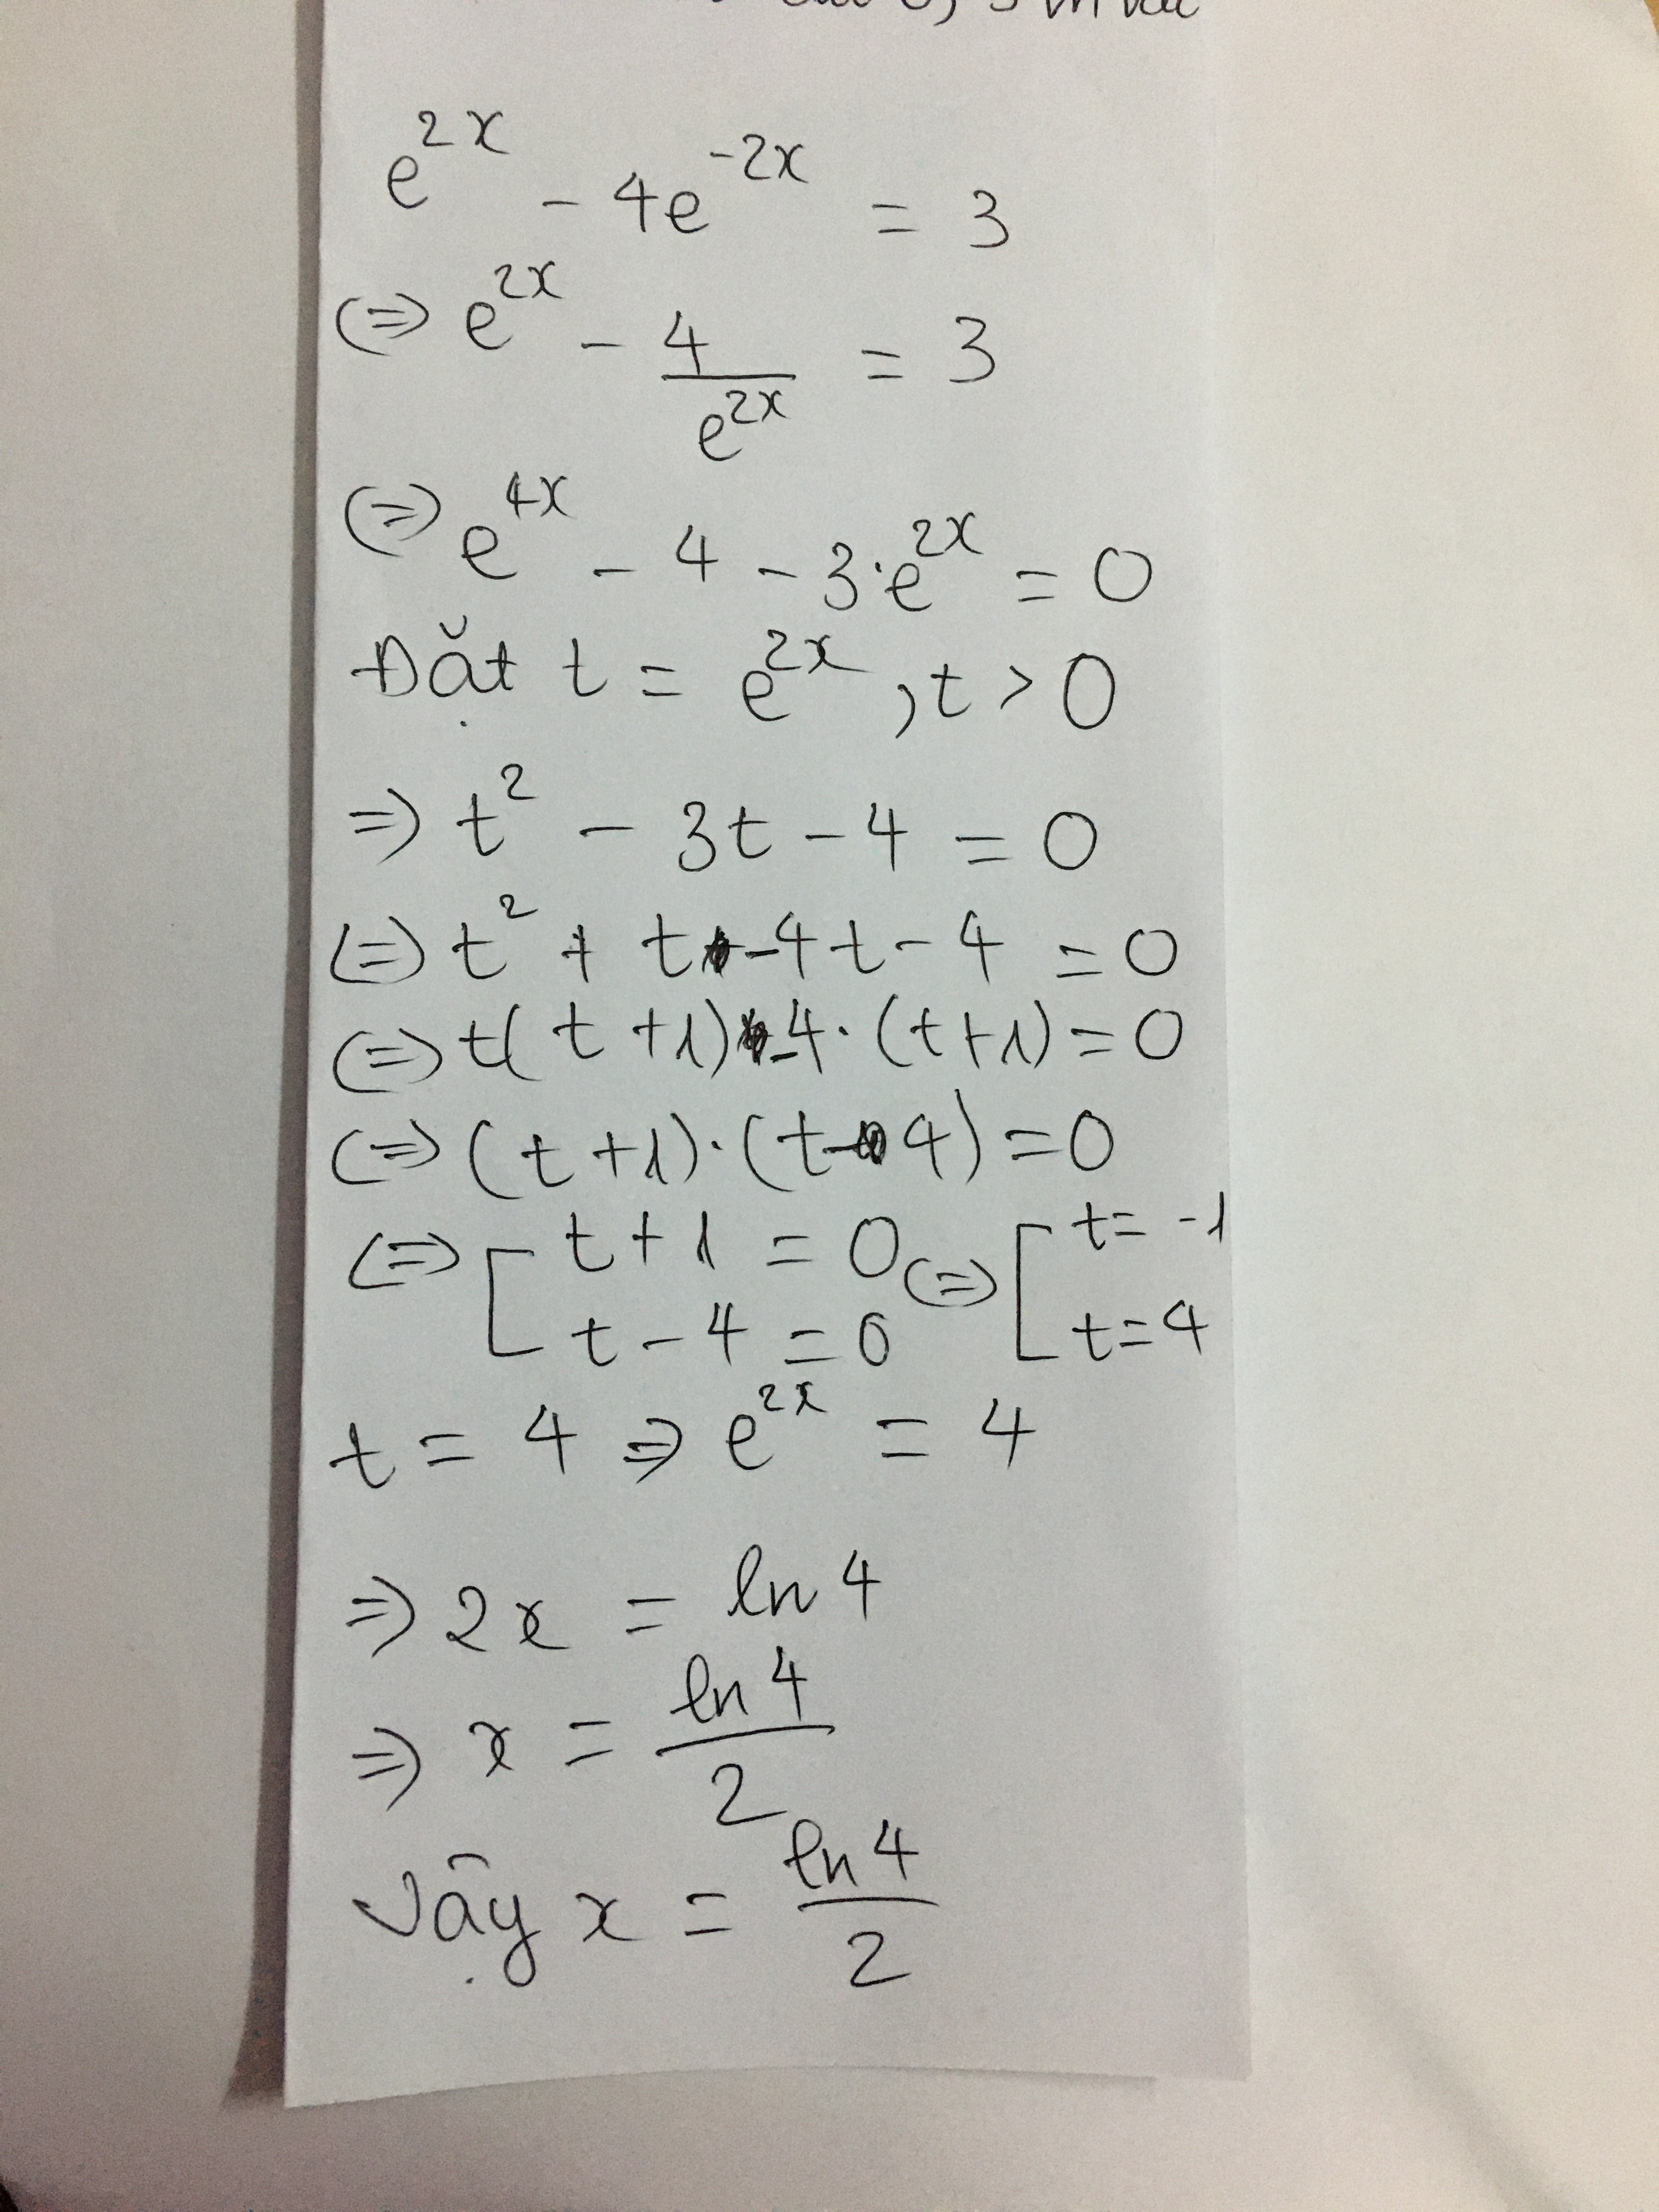 e^{2x} - 4e^{-2x} = 3
(=) e^{2x} - \frac{4}{e^{2x}} = 3
(=) e^{4x} - 4 - 3·e^{2x} = 0
Đặt t = e^{2x}, t > 0
=) t^2 - 3t - 4 = 0
(=) t^2 + t - 4t - 4 = 0
(=) t(t+1) - 4·(t+1) = 0
(=) (t+1)·(t-4) = 0
(=) [ t+1 = 0 (=) [ t = -1
t - 4 = 0 t = 4
t = 4 => e^{2x} = 4
=) 2x = ln 4
=) x = \frac{ln 4}{2}
Vậy x = \frac{ln 4}{2}